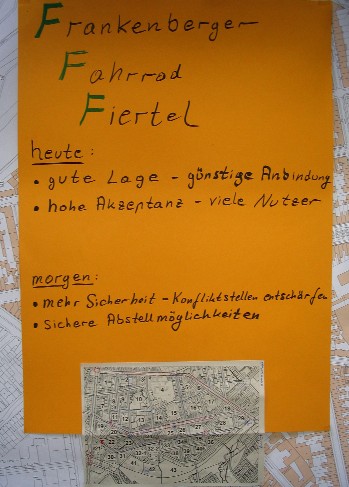 Frankenberger
Fahrrad
Fiertel
heute:
• gute Lage - günstige Anbindung
• hohe Akzeptanz - viele Nutzer
morgen:
• mehr Sicherheit - Konfliktstellen entschärfen
• Sichere Abstellmöglichkeiten